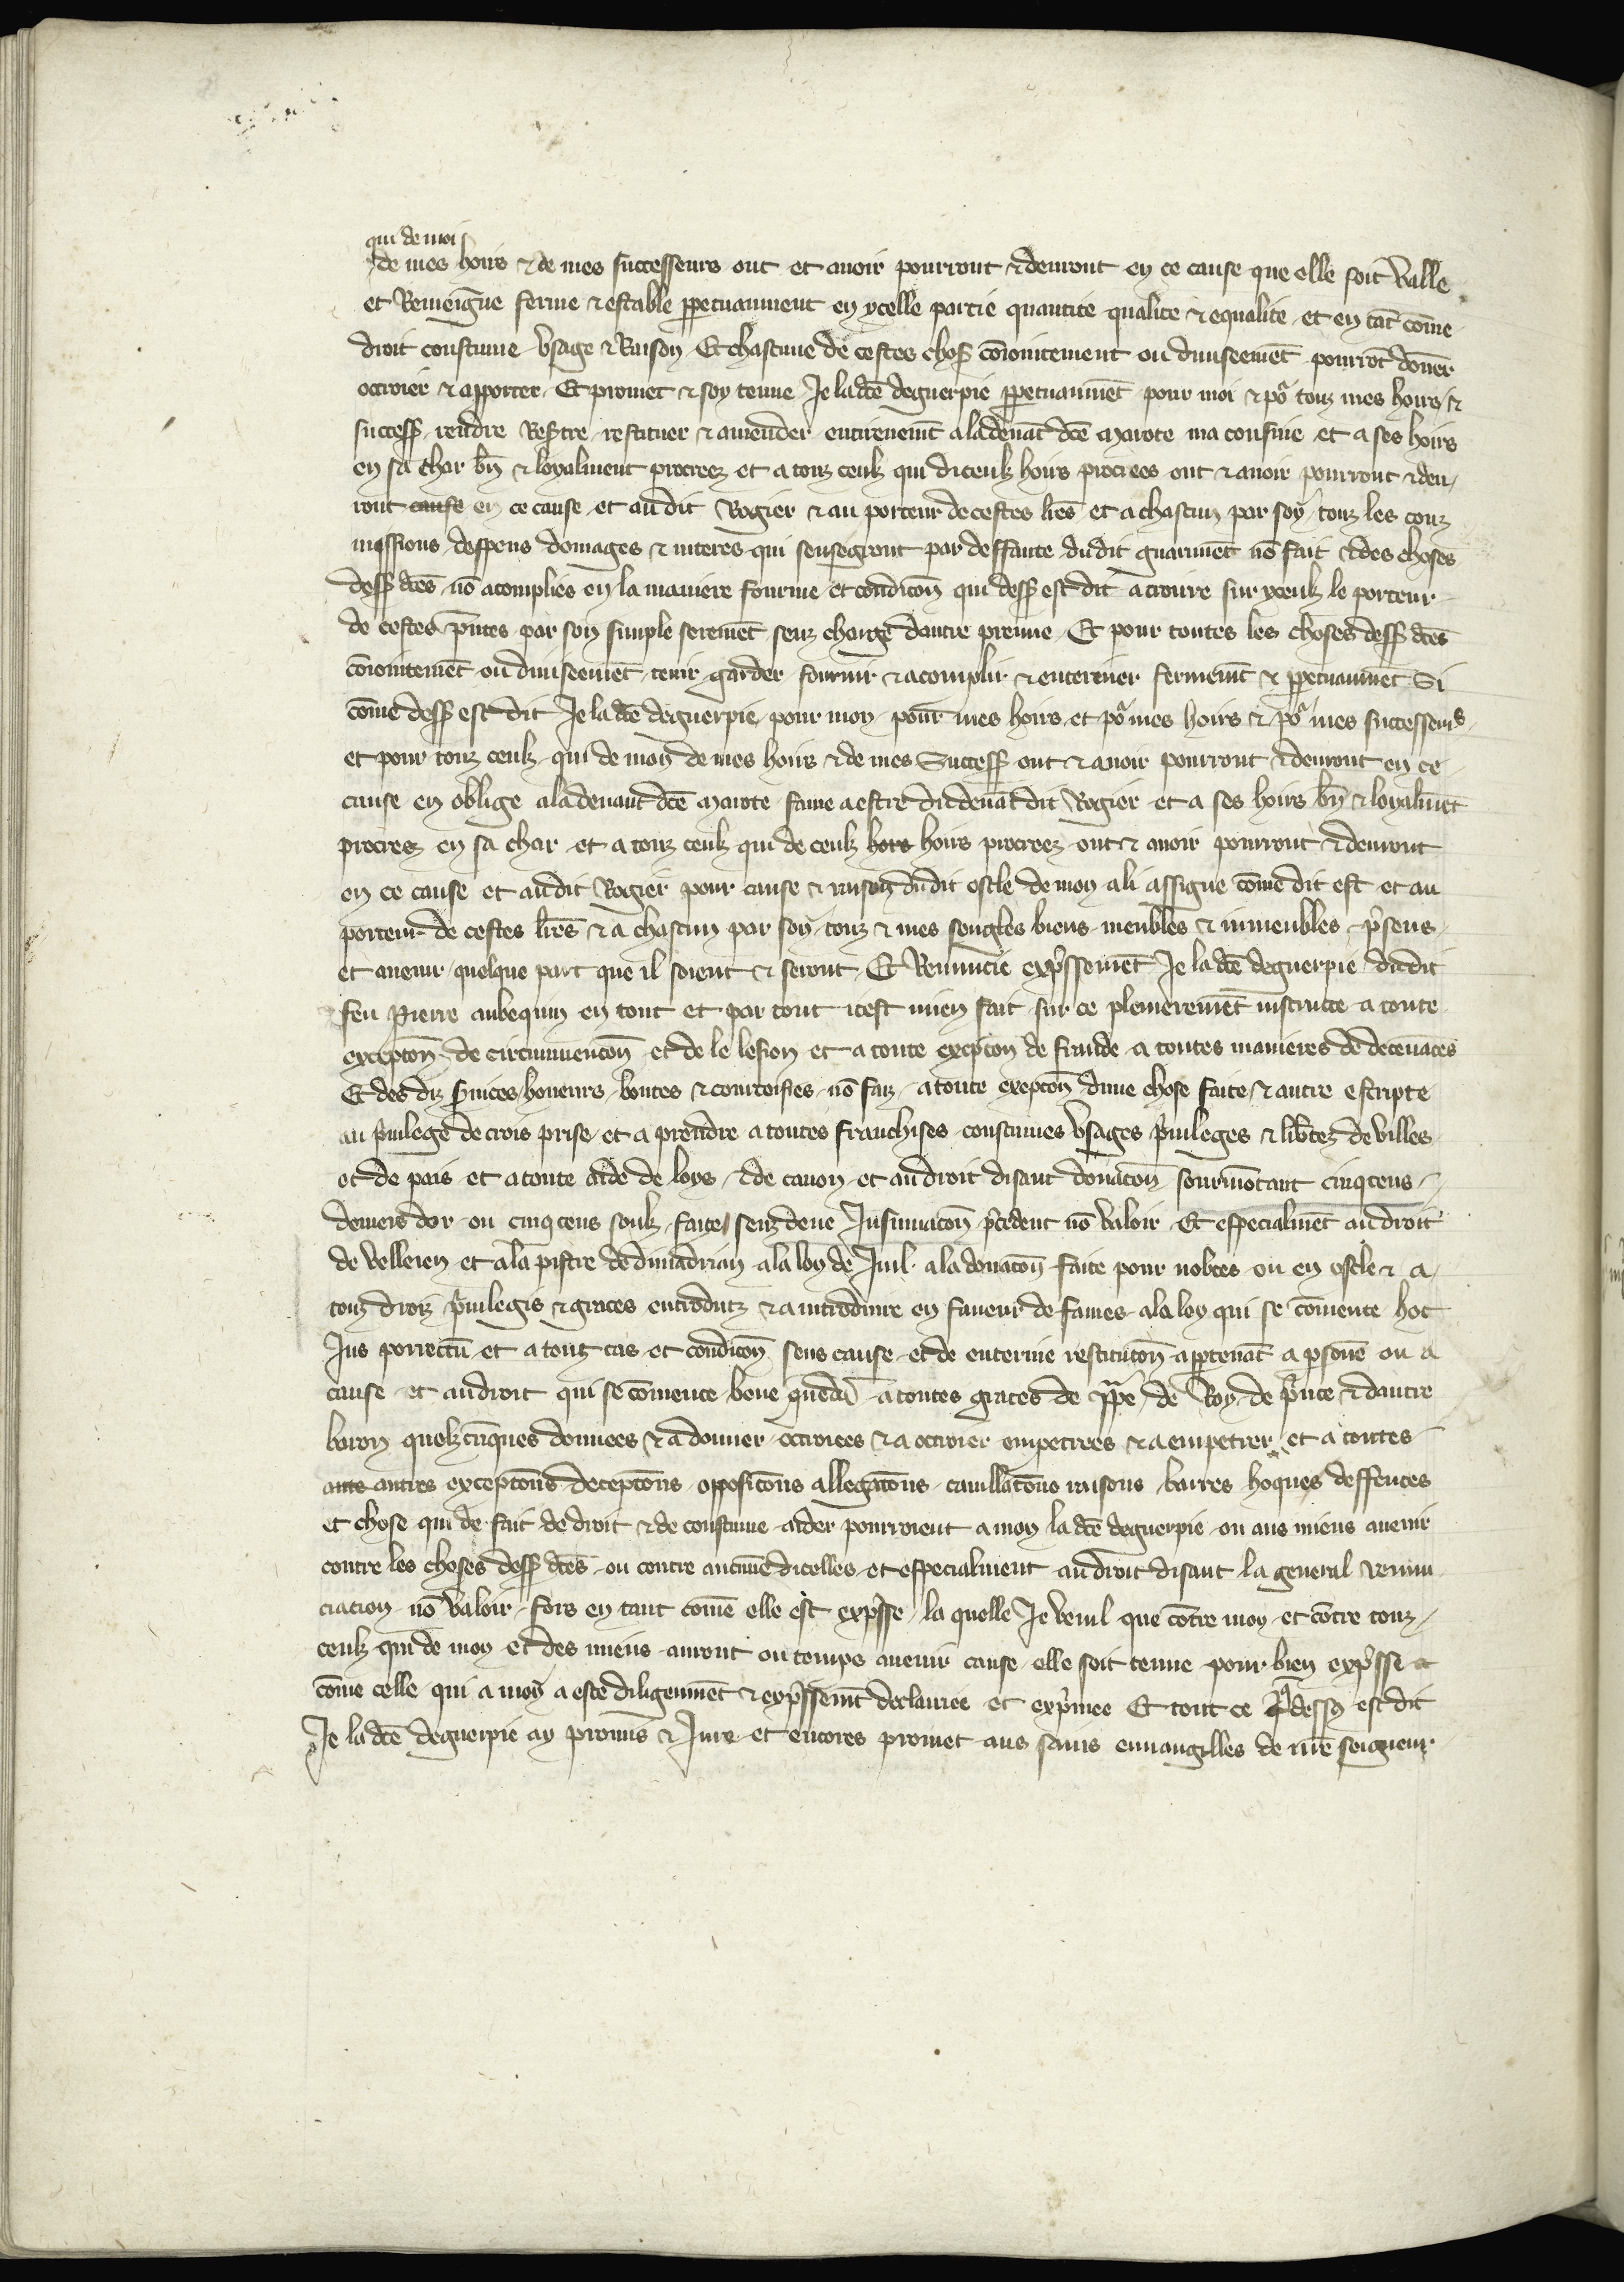 qui de moi
de mes hoirs & de mes successeurs ont et avoir pourront & devront en ce cause que elle soit valle
et Remeigne ferme & estable ꝑpetuaument en ycelle partie quantite qualite & equalite et en tāt cōme
droit coustume vsage & Raison Et chascune de cestes chosꝭ cōioīntement ou diviseemēt pourrōt dōner
octroier & apporter Et promet & soy tenue Je la dcē deguerpie ꝑpetuaumēt pour moi & po͛ touz mes hoirs &
successꝭ rendre Restre restituer & amender entirenemt̄ a la devāt dcē Marote ma cousine et a ses hoirs
en sa char bn̄ & loyalment procreez et a touz ceulz qui diceulz hoirs procrees ont & avoir pourront & dev
ront cause en ce cause et au dit Rogier & au porteur de cestes lr̄es et a chascun par soy touz les couz
missions despens domages & interes qui sensegront par deffaute du dit guarimēt nō fait & des choses
dessꝭ dcēs nō acomplies en la maniere fourme et condicōn qui dessꝭ est dit a croire sur yceulz le porteur
de cestes pn̄tes par son simple seremēt senz charge dautre preuve Et pour toutes les choses dessꝭ dcēs
cōioīntemēt ou diviseemēt tenir garder fournir & acomplir & enteriner fermemt̄ & ꝑpetuaumēt Si
cōme dessꝭ est dit Je la dcē deguerpie pour moy pour mes hoirs et po͛ mes hoirs & po͛ mes successeurs
et pour touz ceulz qui de moy de mes hoirs & de mes Successꝭ ont & avoir pourront & devront en ce
cause en oblige a la devant dcē Marote fame a estre du devāt dit Rogier et a ses hoirs bn̄ & loyalmēt
procreez en sa char et a touz ceulz qui de ceulz hors hoirs procreez ont & avoir pourront & devront
en ce cause et au dit Rogier pour cause & raison du dit oscle de moy a li assigne cōme dit est et au
porteur de cestes lr̄es & a chascun par soy touz & mes sengles biens meubles & inmeubles p͛sens
et avenir quelque part que il soient & seront Et Renuncie exp͛ssemēt Je la dcē deguerpie du dit
feu Pierre aubequin en tout et par tout icest mien fait sur ce plenieremēt instructe a toute
excepcōn de circumvencōn et de le lesion et a toute excepcōn de fraude a toutes manieres de decevāces
Et des diz s͛vices honeurs bontes & courtoisies nō faiz a toute excepcōn dune chose faite & autre escripte
au p͛vilege de crois prise et a prendre a toutes franchises coustumes vsages p͛vileges & lib͛tez de villes
et de pais et a toute aide de loys & de canon et au droit disant donacōn sourmōtant cinqcens
deniers dor ou cinqcens soulz faite senz deue Insinuacōn p͛cedent nō valoir Et especialmēt au droit
de velleien et a la pistre de diviadrian a la loy de Juil a la donacōn faite pour nobces ou en oscle & a
touz droiz p͛vilegis & graces entroduitz & a introduire en faveur de fames a la loy qui se cōmente hoc
Jus porrectū et a touz cas et condicōn sens cause et de enterine restitucōn aꝑtenāt a ꝑsone ou a
cause et au droit qui se cōmence bene a zenone a toutes graces de Pape de Roy de p͛nce & dautre
baron quelzcūques donnees & a donner octroiees & a octroier empetrees & a empetrer et a toutes
auts autres excepcōns decepcōns opposicōns allegacōns cavillacōns raisons barres hoques deffences
et chose qui de fait de droit & de coustume aider pourroient a moy la dcē deguerpie ou aus miens avenir
contre les choses dessꝭ dcēs ou contre aucune dicelles et especialment au droit disant la general renun
ciation nō valoir fors en tant comē elle est exp͛sse la quelle Je veuil que cōtre moy et cōtre touz
ceulz qui de moy et des miens auront ou temps avenir cause elle soit tenue pour bien exp͛sse &
cōme celle qui a moy a este diligemmēt & exp͛ssemt̄ declairee et exp͛mee Et tout ce q̄ dessꝰ est dit
Je la dcē deguerpie ay promis & Jure et encores promet aus sains euvangilles de nr̄e seigneur